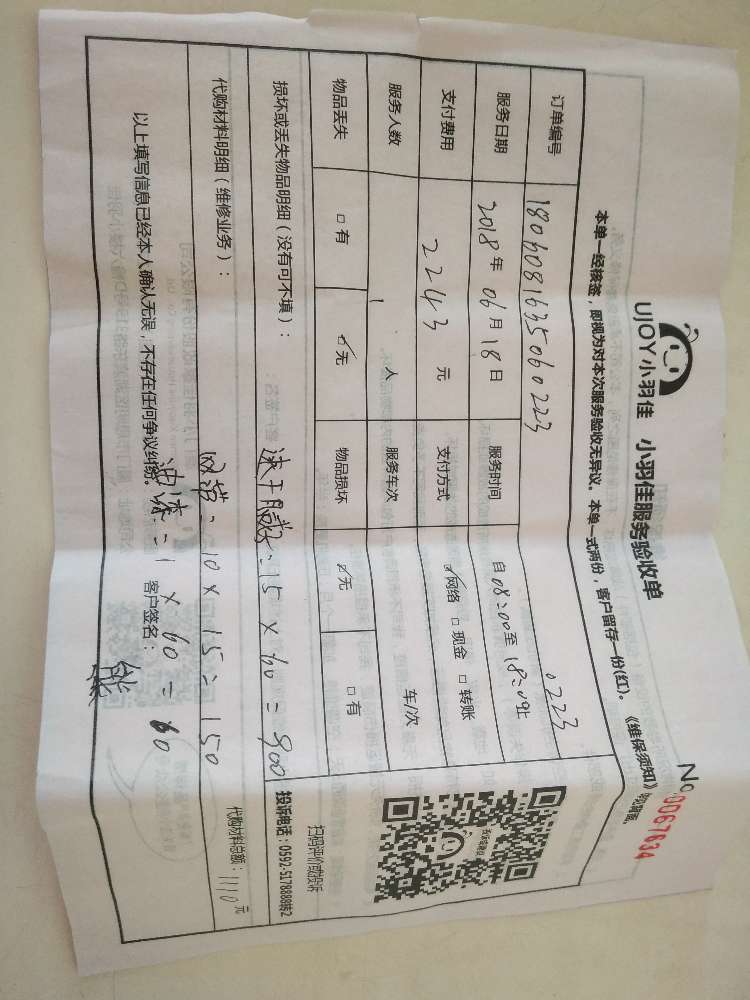 UJOY小羽佳 小羽佳服务验收单
No 0067634
本单一经核签，即视为对本次服务验收无异议。本单一式两份，客户留存一份(红)。《维保须知》
订单编号 1806081635060223 0223
服务日期 2018年06月18日 服务时间 自08:00至18:00止
支付费用 2243元 支付方式 ☑网络 □现金 □转账
服务人数 1人 服务车次 车/次
物品丢失 □有 ☑无 物品损坏 ☑无 □有
投诉或建议
扫码评价或投诉
投诉电话：0592-5178888转2
损坏或丢失物品明细（没有可不填）：
速干 = 15 × 60 = 900
代购材料明细（维修业务）：
= 10 × 15 = 150
代购材料总额：1110元
油漆 = 1 × 60 = 60
以上填写信息已经本人确认无误，不存在任何争议纠纷。 客户签名：